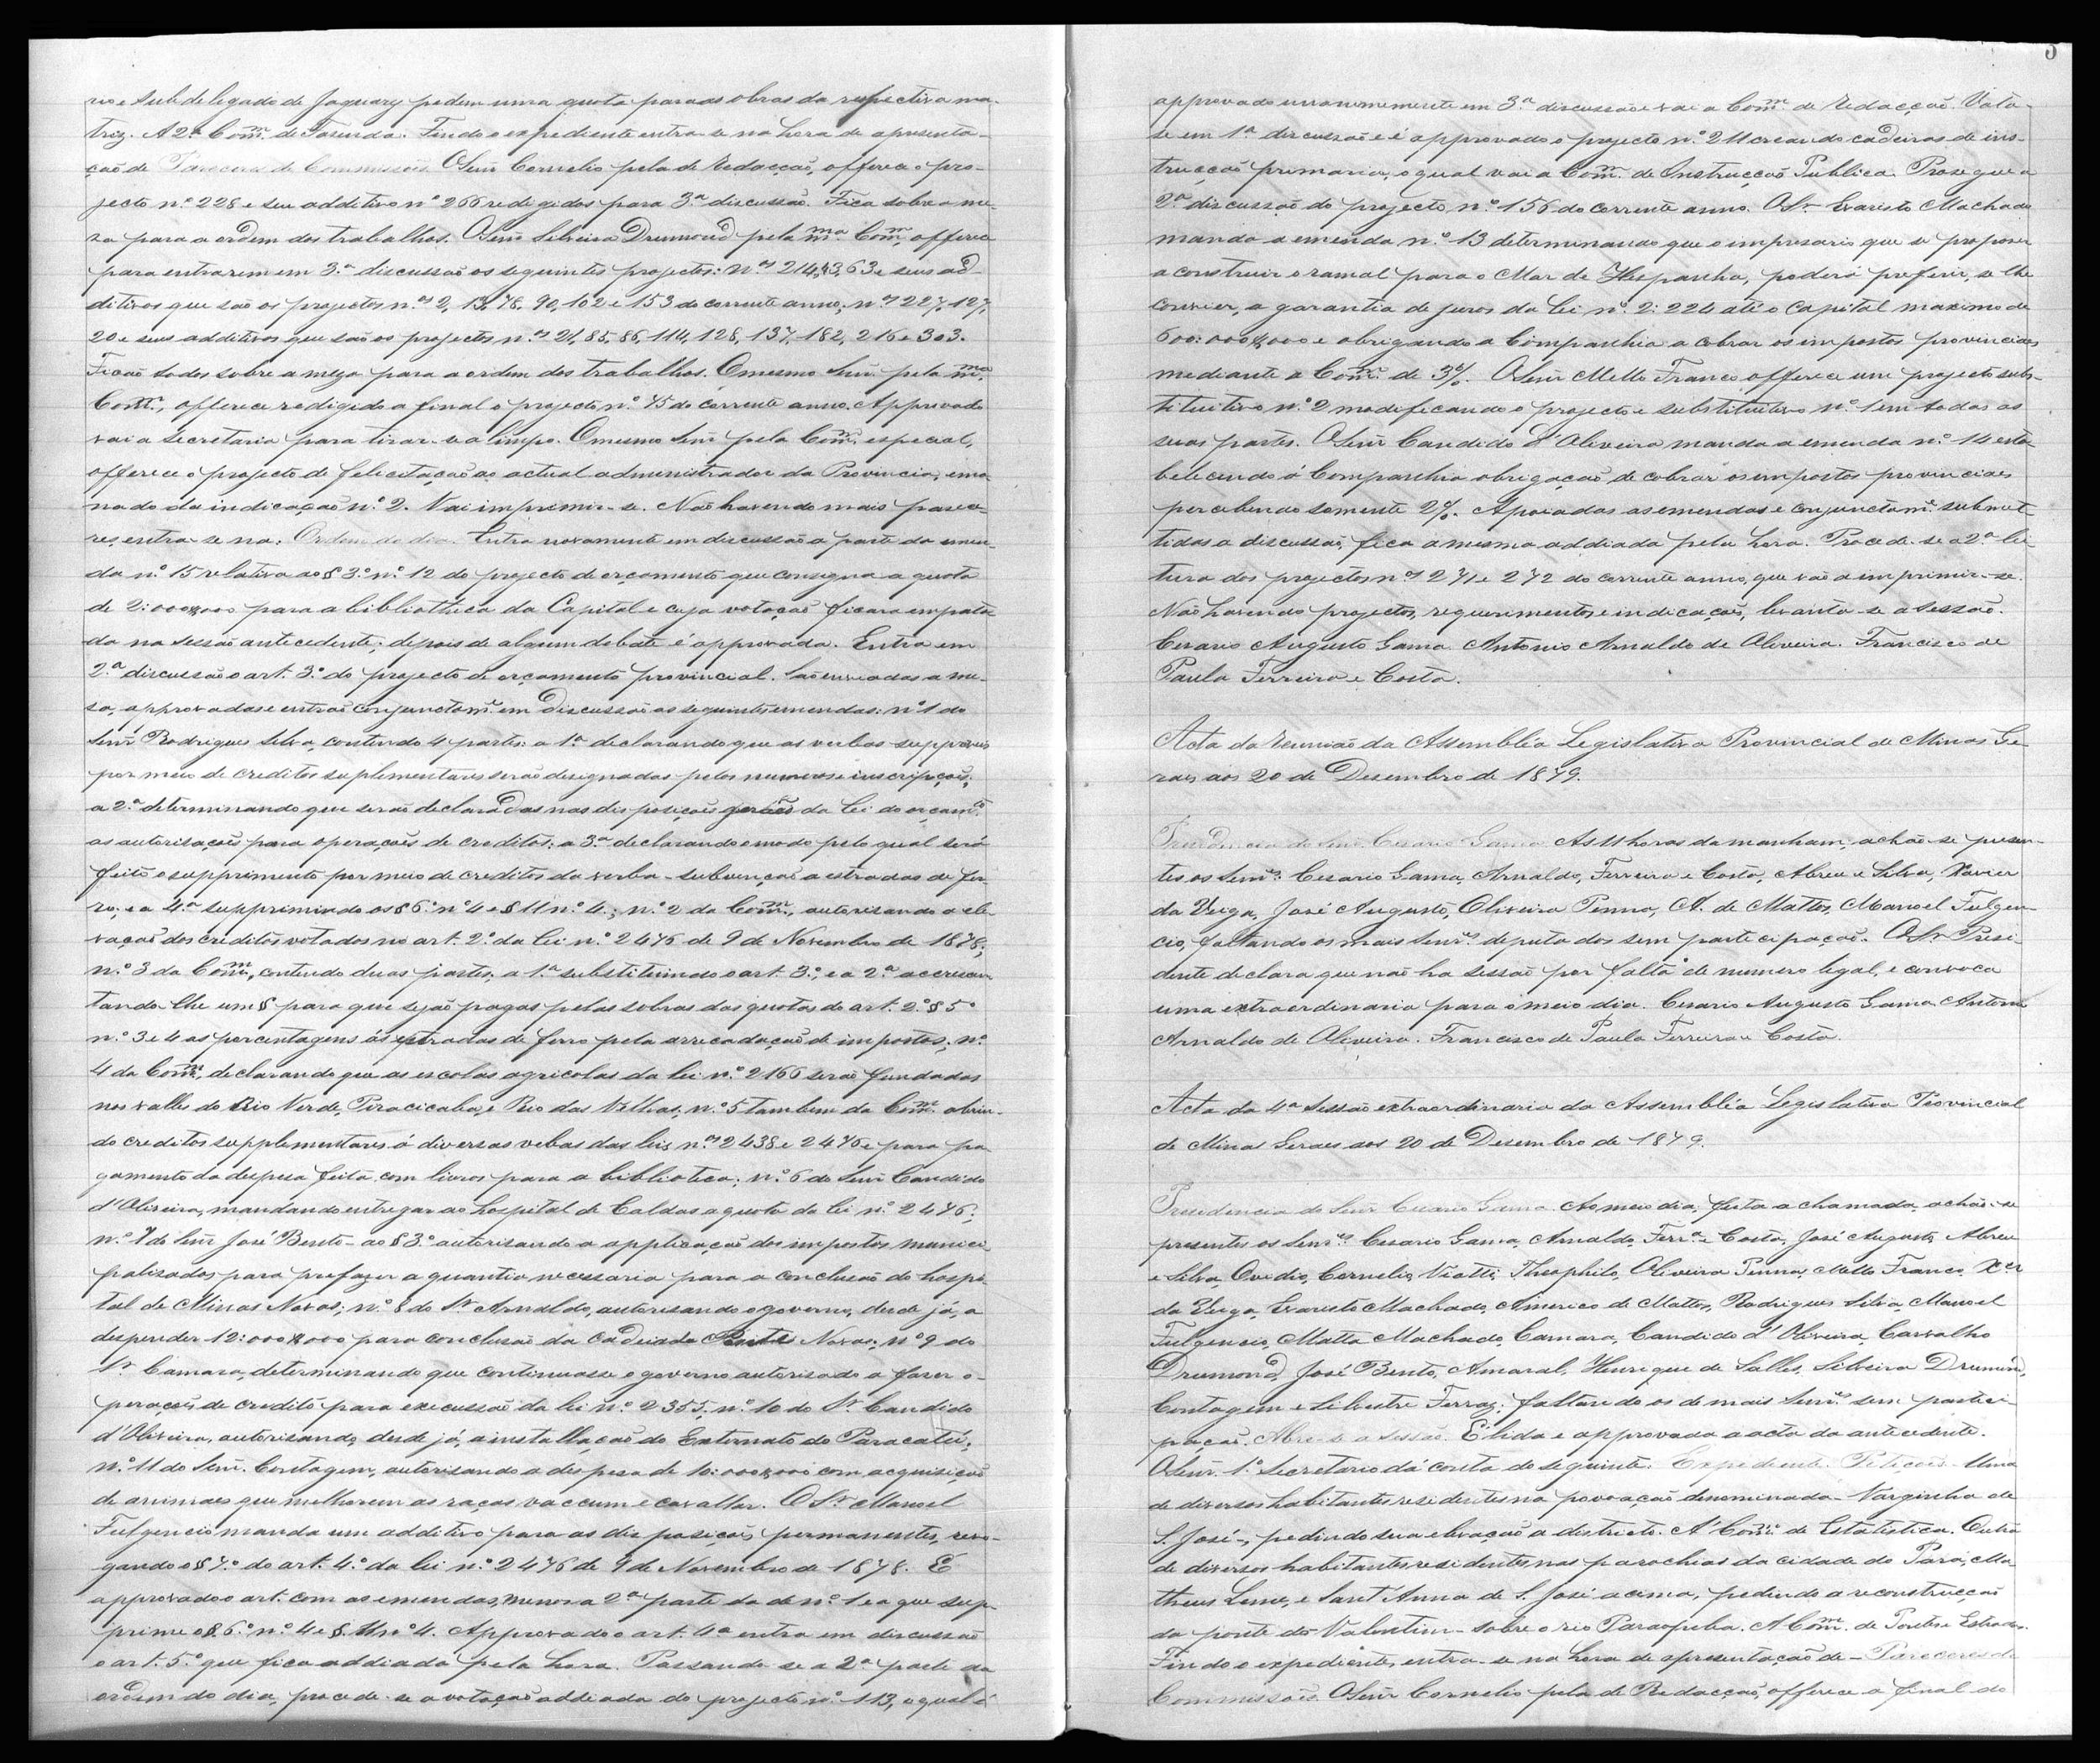 rio e subdelegado de Jaguary pedem uma quota para as obras da respectiva ma-
triz. A 2ª Comm. de Fasenda. Findo o expediente entra-se na hora de apresenta-
ção de Pareceres de Commissões. O Senr Cornelio pela de Redacção, offerece o pro-
jecto nº 228 e seu additivo nº 266 redigidos para 3ª discussão. Fica sobre a me-
sa para a ordem dos trabalhos. O Senr Silveira Drumond pela mma Comm offerece
para entrarem em 3ª discussão os seguintes projectos: nos 214, 83, 63 e seus ad-
ditivos que são os projectos n.os 2, 13, 78, 90, 102 e 153 do corrente anno; nos 227, 127,
20 e seus additivos que são os projectos n.os 21, 85, 86, 114, 128, 137, 182, 216 e 303.
Ficão todos sobre a meza para a ordem dos trabalhos. O mesmo Senr pela mma
Comm., offerece redigido a final o projecto nº 75 do corrente anno. Approvado
vai a secretaria para tirar-se a limpo. O mesmo Senr pela Comm. especial,
offerece o projecto de felicitação ao actual administrador da Provincia, ema-
nado da indicação nº 2. Vai imprimir-se. Não havendo mais parece-
res entra-se na: Ordem do dia. Entra novamente em discussão a parte da emen-
da nº 15 relativa ao § 3º nº 12 do projecto de orçamento que consigna a quota
de 2:000$000 para a bibliotheca da Capital e cuja votação ficara empata-
da na sessão antecedente; depois de algum debate é approvada. Entra em
2ª discussão o art. 3º do projecto de orçamento provincial. São enviadas a me-
sa, approvadas e entrão conjunctamte em discussão as seguintes emendas: nº 1 do
Senr Rodrigues Silva, contendo 4 partes: a 1ª declarando que as verbas suppriveis
por meio de creditos suplementares serão designadas pelos numeros e inscripções;
a 2ª determinando que serão declaradas nas disposições geraes da Lei do orçamto
as autorisações para operações de creditos; a 3ª declarando o modo pelo qual será
feito o supprimento por meio de creditos da verba - subvenção a estradas de fer-
ro; e a 4ª supprimindo os § 6º nº 4 e § 11 nº 4.; nº 2 da Comm., autorisando a ele-
vação dos creditos votados no art. 2º da Lei nº 2476 de 9 de Novembro de 1878;
nº 3 da Comm., contendo duas partes; a 1ª substituindo o art. 3º, e a 2ª accrescen-
tando-lhe um § para que sejão pagas pelas sobras das quotas do art. 2º § 5º
nº 3 e 4 as porcentagens ás estradas de ferro pela arrecadação de impostos; nº
4 da Comm., declarando que as escolas agricolas da lei nº 2166 serão fundadas
nos valles do Rio Verde, Piracicaba, e Rio das Velhas; nº 5 tambem da Comm. abrin-
do creditos supplementares á diversas verbas das leis nos 2438 e 2476 e para pa-
gamento da despesa feita com livros para a biblioteca; nº 6 do Senr Candido
d'Oliveira, mandando entregar ao hospital de Caldas a quota da lei nº 2476;
nº 7 do Senr José Bento - ao § 3º autorisando a applicação dos impostos munici-
palisados para prefazer a quantia necessaria para a conclusão do hospi-
tal de Minas Novas; nº 8 do Sr Arnaldo, autorisando o governo, desde já, a
despender 12:000$000 para conclusão da Cadeia de Ponte Nova; nº 9 do
Sr Camara, determinando que continuasse o governo autorisado a faser o-
perações de credito para execussão da lei nº 2355; nº 10 do Sr Candido
d'Oliveira, autorisando, desde já, a installação do Externato do Paracatú;
nº 11 do Senr. Contagem, autorisando a despesa de 10:000$000 com acquisição
de animaes que melhorem as raças vaccum e cavallar. O Sr Manoel
Fulgencio manda um additivo para as disposições permanentes, revo-
gando o § 7º do art. 4º da lei nº 2476 de 9 de Novembro de 1878. É
approvado o art. com as emendas, menos a 2ª parte da de nº 1 e a que sup-
prime o § 6º nº 4 e § 11 nº 4. Approvado o art. 4º entra em discussão
o art. 5º que fica addiada pela hora. Passando-se a 2ª parte da
ordem do dia, procede-se a votação addiada do projecto nº 113, o qual é
5
approvado unanimemente em 3ª discussão e vai a Comm. de Redacção. Vota-
se em 1ª discussão e é approvado o projecto nº 211 creando cadeiras de ins-
trucção primaria, o qual vai a Comm. de Instrucção Publica. Prosegue a
2ª discussão do projecto nº 156 do corrente anno. O Sr Evaristo Machado
manda a emenda nº 13 determinando que o impresario que se propozer
a construir o ramal para o Mar de Hespanha, poderá preferir, se lhe
convier, a garantia de juros da Lei nº 2:224 até o Capital maximo de
600:000$000 e obrigando a Companhia a cobrar os impostos provinciaes
mediante a Comm. de 3%. O Senr Mello Franco offerece um projecto subs-
titutivo nº 2 modificando o projecto e substitutivo nº 1 em todas as
suas partes. O Senr Candido d'Oliveira manda a emenda nº 14 esta-
belecendo á Companhia obrigação de cobrar os impostos provinciaes
percebendo somente 2%. Apoiadas as emendas e conjunctamte submet-
tidas a discussão, fica a mesma addiada pela hora. Procede-se a 2ª lei-
tura dos projectos nos 271 e 272 do corrente anno, que vão a imprimir-se.
Não havendo projectos, requerimentos e indicações, levanta-se a sessão.
Cesario Augusto Gama. Antonio Arnaldo de Oliveira. Francisco de
Paula Ferreira e Costa.
Acta da reunião da Assembléa Legislativa Provincial de Minas Ge-
raes aos 20 de Desembro de 1879.
Presidencia do Senr. Cesario Gama. As 11 horas da manham, achão-se presen-
tes os Senrs. Cesario Gama, Arnaldo, Ferreira e Costa, Abreu e Silva, Xavier
da Veiga, José Augusto, Oliveira Penna, A. de Mattos, Manoel Fulgen-
cio, faltando os mais Senrs deputados sem participação. O Sr Presi-
dente declara que não ha sessão por falta de numero legal, e convoca
uma extraordinaria para o meio dia. Cesario Augusto Gama. Antonio
Arnaldo de Oliveira. Francisco de Paula Ferreira e Costa.
Acta da 4ª Sessão extraordinaria da Assembléa Legislativa Provincial
de Minas Geraes aos 20 de Desembro de 1879.
Presidencia do Senr Cesario Gama. Ao meio dia, feita a chamada, achão-se
presentes os Senrs. Cesario Gama, Arnaldo, Ferrª e Costa, José Augusto, Abreu
e Silva, Ovidio, Cornelio, Viotti, Theophilo, Oliveira Penna, Mello Franco, Xer
da Veiga, Evaristo Machado, Americo de Mattos, Rodrigues Silva, Manoel
Fulgencio, Matta Machado, Camara, Candido d'Oliveira, Carvalho
Drumond, José Bento, Amaral, Henrique de Salles, Silveira Drumond,
Contagem e Silvestre Ferraz; faltando os demais Senrs sem partici-
pação. Abre-se a sessão. É lida e approvada a acta da antecedente.
O Senr. 1º Secretario dá conta do seguinte: Expediente. Petições. Uma
de diversos habitantes residentes na povoação denominada - Varginha de
S. José -, pedindo sua elevação a districto. A' Comm. de Estatistica. Outra
de diversos habitantes residentes nas parochias da cidade do Pará, Ma-
theus Leme, e Sant'Anna de S. José acima, pedindo a reconstrucção
da ponte do - Valentim - sobre o rio Paraopeba. A Comm. de Pontes e Estradas.
Findo o expediente, entra-se na hora de apresentação de - Pareceres de
Commissões. O Senr Cornelio pela de Redacção, offerece a final do